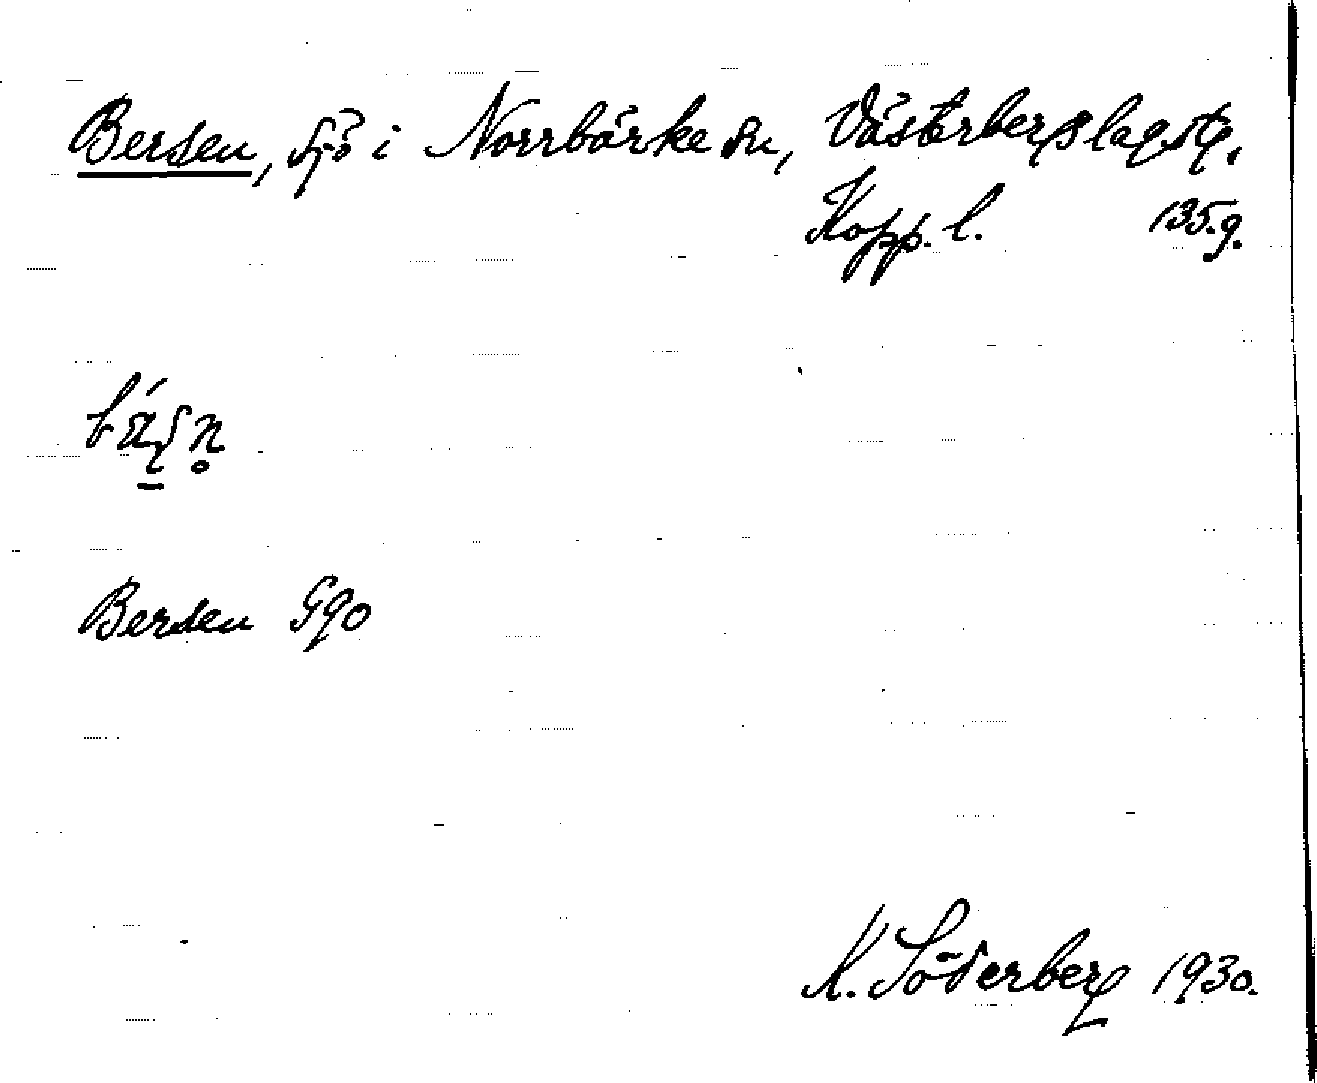 Bersen, sjö i Norrbärke sn, Västerbergslags tg,
Kopp. l. 135.g.
Bersen Gqo
K. Söderberg 1930.